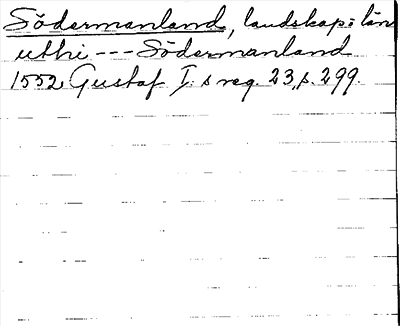 Södermanland, landskap: län
uthi --- Södermanland
1552 Gustaf I:s reg. 23, s. 299.